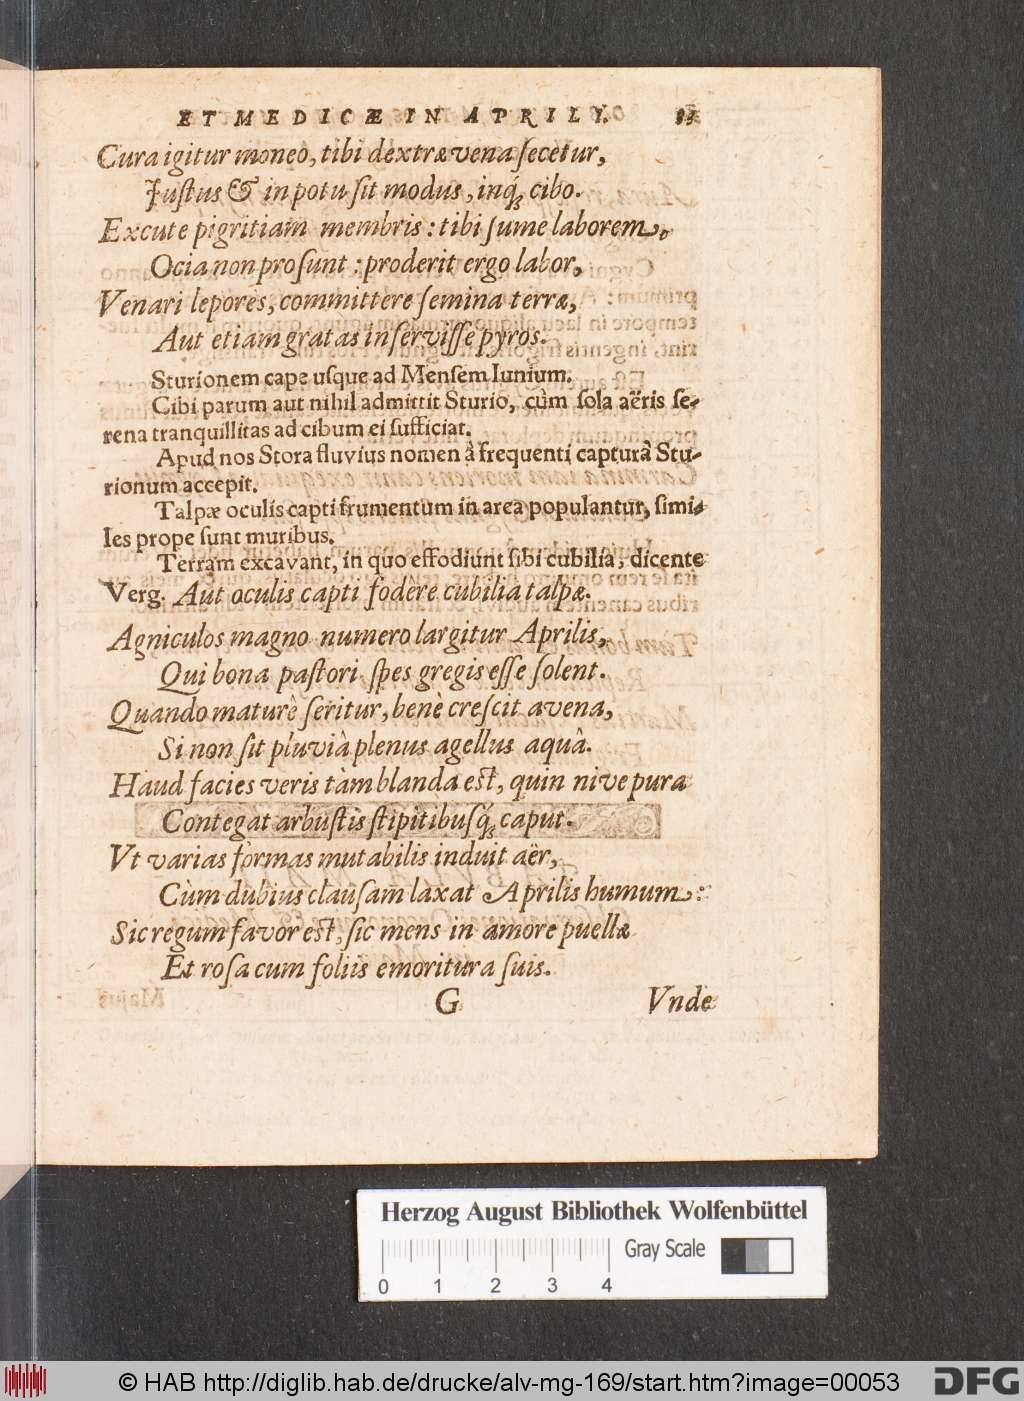 ET MEDICÆ IN APRILI.
Cura igitur moneo, tibi dextræ vena secetur,
Justus & in potu sit modus, inq́; cibo.
Excute pigritiam membris: tibi sume laborem,
Ocia non prosunt: proderit ergo labor,
Venari lepores, committere semina terræ,
Aut etiam gratas inservisse pyros.
Sturionem cape usque ad Mensem Iunium.
Cibi parum aut nihil admittit Sturio, cùm sola aëris se-
rena tranquillitas ad cibum ei sufficiat.
Apud nos Stora fluvius nomen à frequenti capturâ Stu-
rionum accepit.
Talpæ oculis capti frumentum in area populantur, simi-
les prope sunt muribus.
Terram excavant, in quo effodiunt sibi cubilia, dicente
Verg. Aut oculis capti fodere cubilia talpæ.
Agniculos magno numero largitur Aprilis,
Qui bona pastori spes gregis esse solent.
Quando maturè seritur, benè crescit avena,
Si non sit pluviâ plenus agellus aquâ.
Haud facies veris tàm blanda est, quin nive pura
Contegat arbustis stipitibusq́; caput.
Vt varias formas mutabilis induit aër,
Cùm dubius clausam laxat Aprilis humum:
Sic regum favor est, sic mens in amore puellæ
Et rosa cum foliis emoritura suis.
G Vnde
Herzog August Bibliothek Wolfenbüttel
Gray Scale
0 1 2 3 4
© HAB http://diglib.hab.de/drucke/alv-mg-169/start.htm?image=00053
DFG